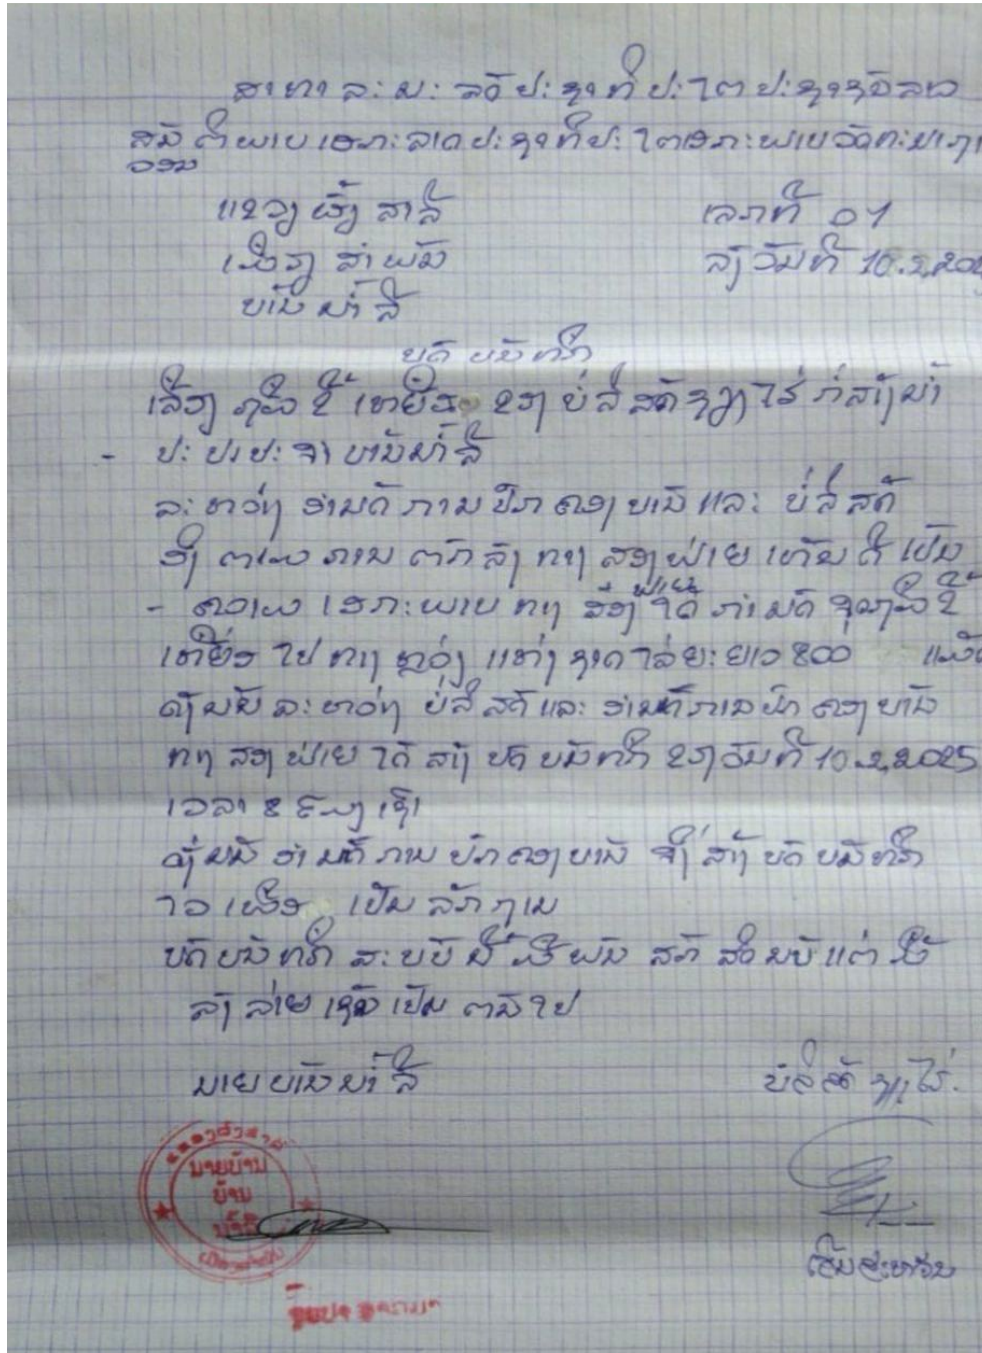 ສາທາ ລະ ນະ ລດັ ປະ ຊາ ທິ ປະ ໄຕ ປະ ຊາຊົນລາວ
ສນັ ຕິພາບ ເອກະ ລາດ ປະ ຊາ ທິປະ ໄຕເອກະ ພາບ ວັດທະ ນາ
ແຂວງ ຜົ້ງ ສາລີ ເລກທີ 01
ເມືອງ ສຳ ພັນ ລົງ ວັນທີ 10.2.202
ບ້ານ ນ້ຳ ລີ
ບົດ ບັນ ທຶກ
ເລື່ອງ ຂີ້ ເຫຍື່ອ ຂອງ ບໍ່ ລິ ສດັ ໄຮ່ ກໍ່ ສ້າງ ນ້ຳ
- ປະ ປາ ປະ ຈຳ ບ້ານ ນ້ຳ ລີ
ລະ ຫວ່າງ ອຳນດັ ການ ປົກ ຄອງ ບ້ານ ແລະ ບໍ່ ລິ ສດັ
ອີງ ຕາມ ການ ຕກົ ລົງ ທາງ ສອງ ຝ່າຍ ເຫັນ ດີ ເປັນ
- ຄວາມ ເອກະ ພາບ ທາງ ສອງ ຝ່າຍ ໄດ້ ກຳ ນດົ ຂີ້
ເຫຍື່ອ ໄປ ທາງ ຫຼວງ ແຫ່ງ ຊາດ ໄລ່ຍະ ຍາວ 800 ແມັດ
ດັ່ງ ນັ້ນ ລະ ຫວ່າງ ບໍ່ ລິ ສດັ ແລະ ອຳນດັ ການ ປົກ ຄອງ ບ້ານ
ທາງ ສອງ ຝ່າຍ ໄດ້ ສ້າງ ບດົ ບັນທຶກ ຂອງ ວັນທີ 10.2.2025
ເວລາ 8 ໂມງ ເຊົ້າ
ດັ່ງ ນັ້ນ ອຳ ນດັ ການ ປົກ ຄອງ ບ້ານ ຈຶ່ງ ສ້າງ ບດົ ບັນທຶກ
ໄວ ເພື່ອ ເປັນ ລັກ ຖານ
ບດົ ບັນ ທຶກ ສະ ບບັ ນີ້ ມີ ຜົນ ສກັ ສດິ ນບັ ແຕ່ ມື້
ລົງ ລາຍ ເຊັນ ເປັນ ຕນົ ໄປ
ນາຍ ບ້ານ ນ້ຳ ລີ ບໍລິສດັ ໄຮ່.
ແຂວງຜົ້ງສາລີ
ນາຍບ້ານ
ບ້ານ
ນ້ຳລີ
ເມືອງສຳພັນ